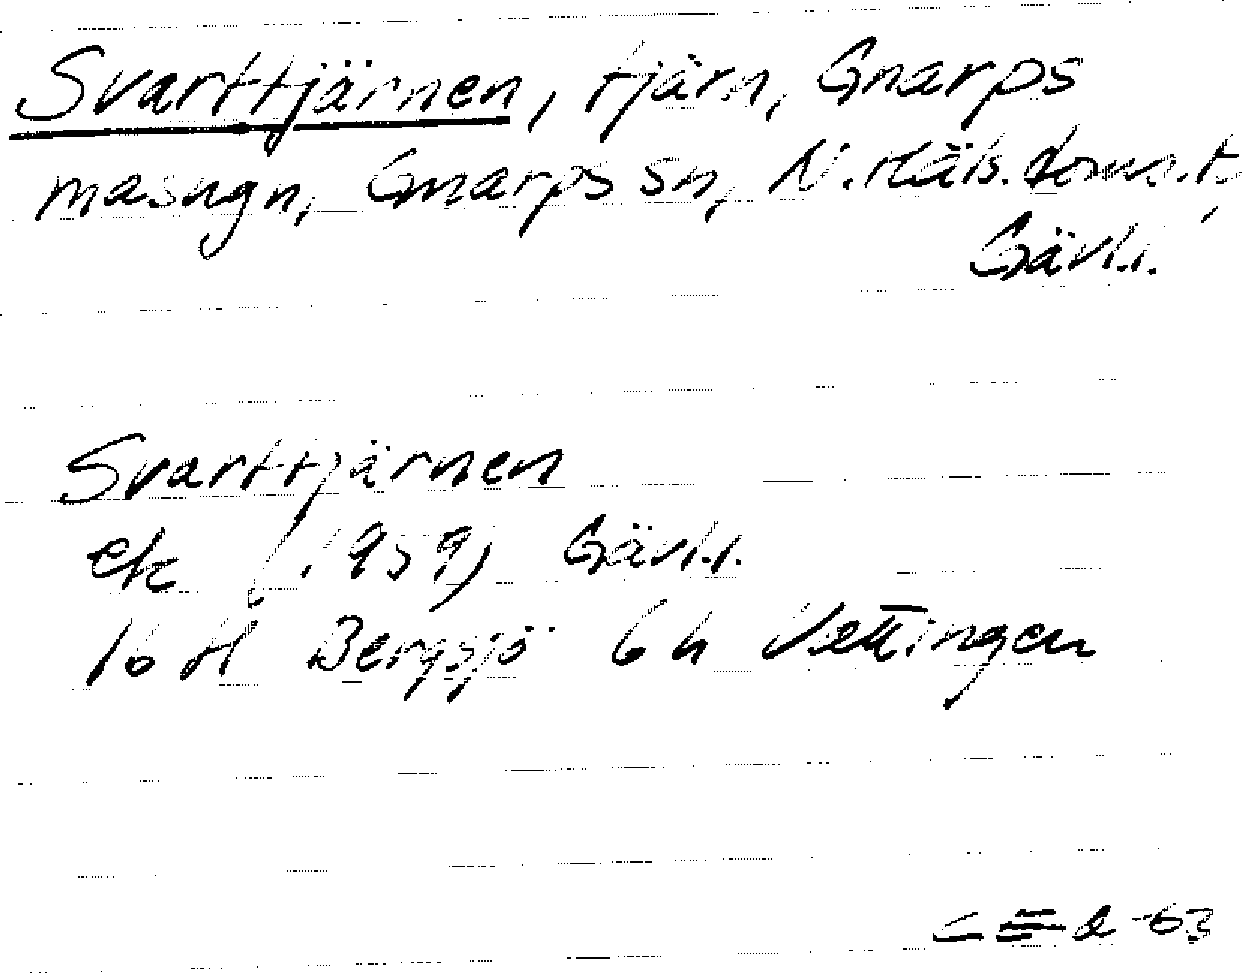 Svarttjärnen, tjärn, Gnarps
masugn, Gnarps sn, N. Häls. doms.t,
Gävl.l.
Svarttjärnen
ek (1959) Gävl.l.
16 H Bergsjö 6h Vettingen
-63